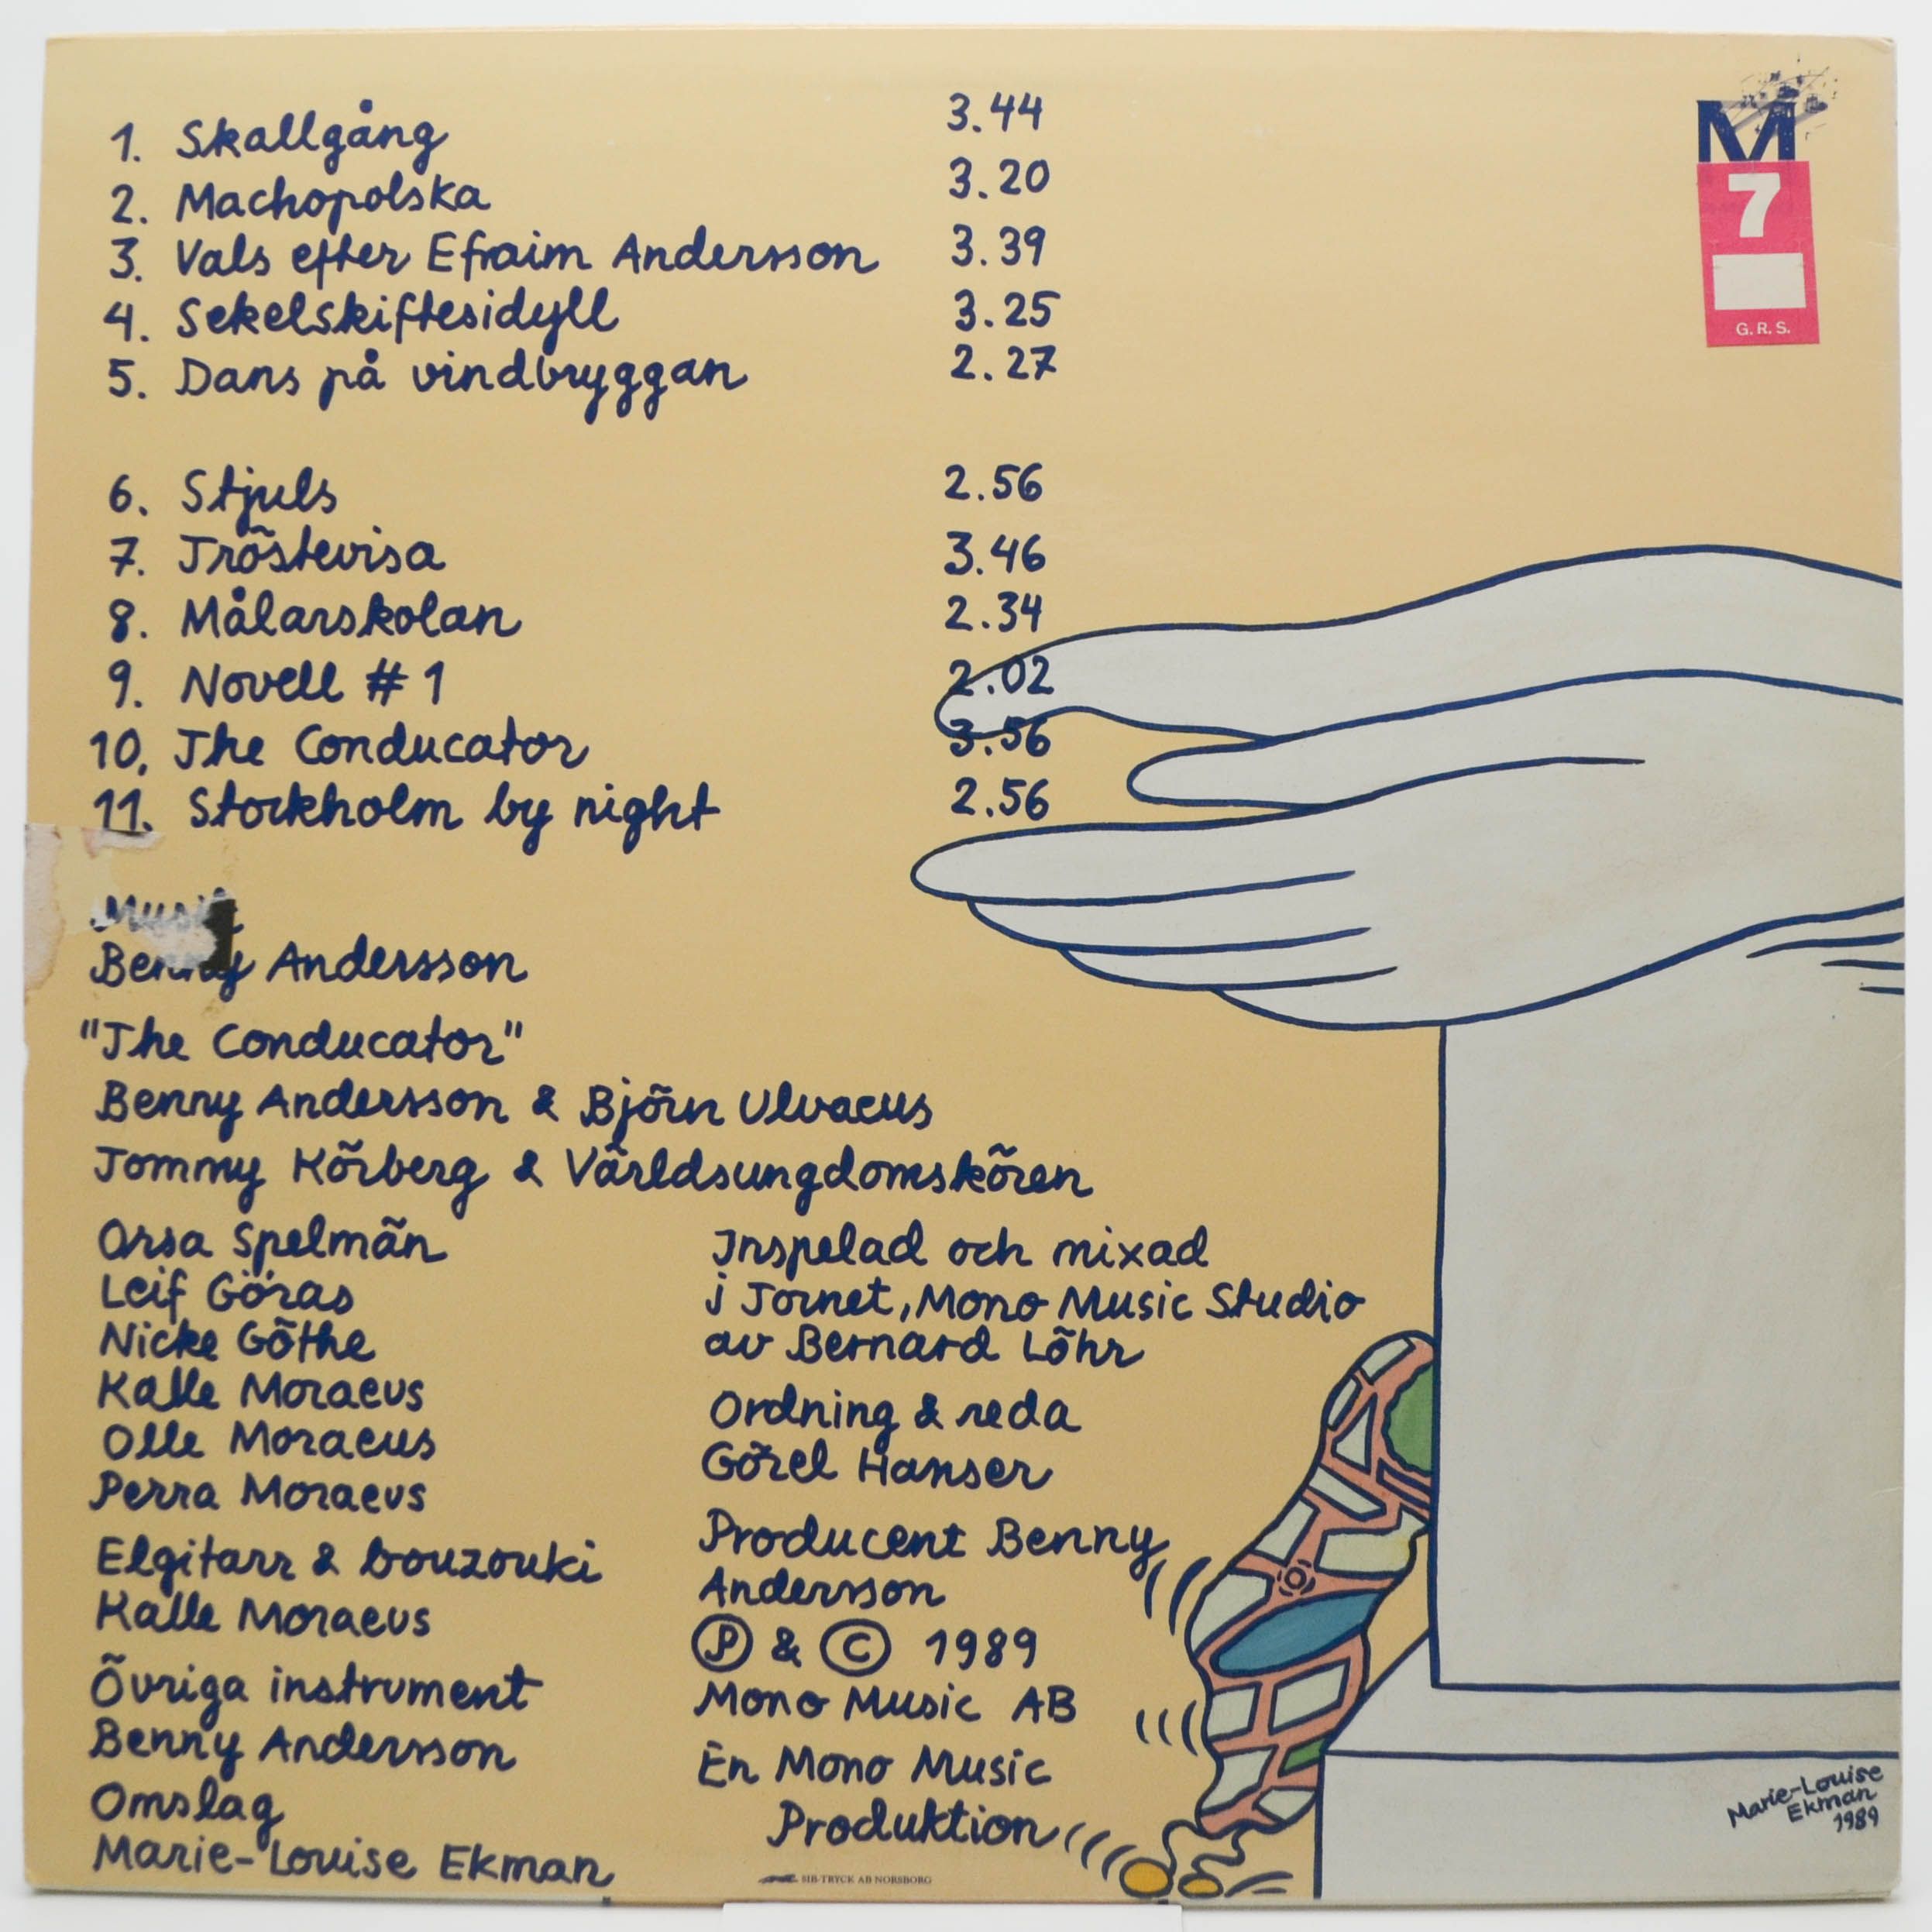 1. Skallgång 3.44
2. Machopolska 3.20
3. Vals efter Efraim Andersson 3.39
4. Sekelskiftesidyll 3.25
5. Dans på vindbryggan 2.27
6. Stjuls 2.56
7. Tröstevisa 3.46
8. Målarskolan 2.34
9. Novell # 1 2.02
10. The Conducator 3.56
11. Stockholm by night 2.56
Musik
Benny Andersson
"The Conducator"
Benny Andersson & Björn Ulvaeus
Tommy Körberg & Världsungdomskören
Orsa Spelmän
Leif Göras
Nicke Göthe
Kalle Moraeus
Olle Moraeus
Perra Moraeus
Elgitarr & bouzouki
Kalle Moraeus
Övriga instrument
Benny Andersson
Omslag
Marie-Louise Ekman
Inspelad och mixad
i Tornet, Mono Music Studio
av Bernard Löhr
Ordning & reda
Görel Hanser
Producent Benny
Andersson
Ⓟ & © 1989
Mono Music AB
En Mono Music
Produktion
M
7
G.R.S.
Marie-Louise
Ekman
1989
SIB-TRYCK AB NORSBORG